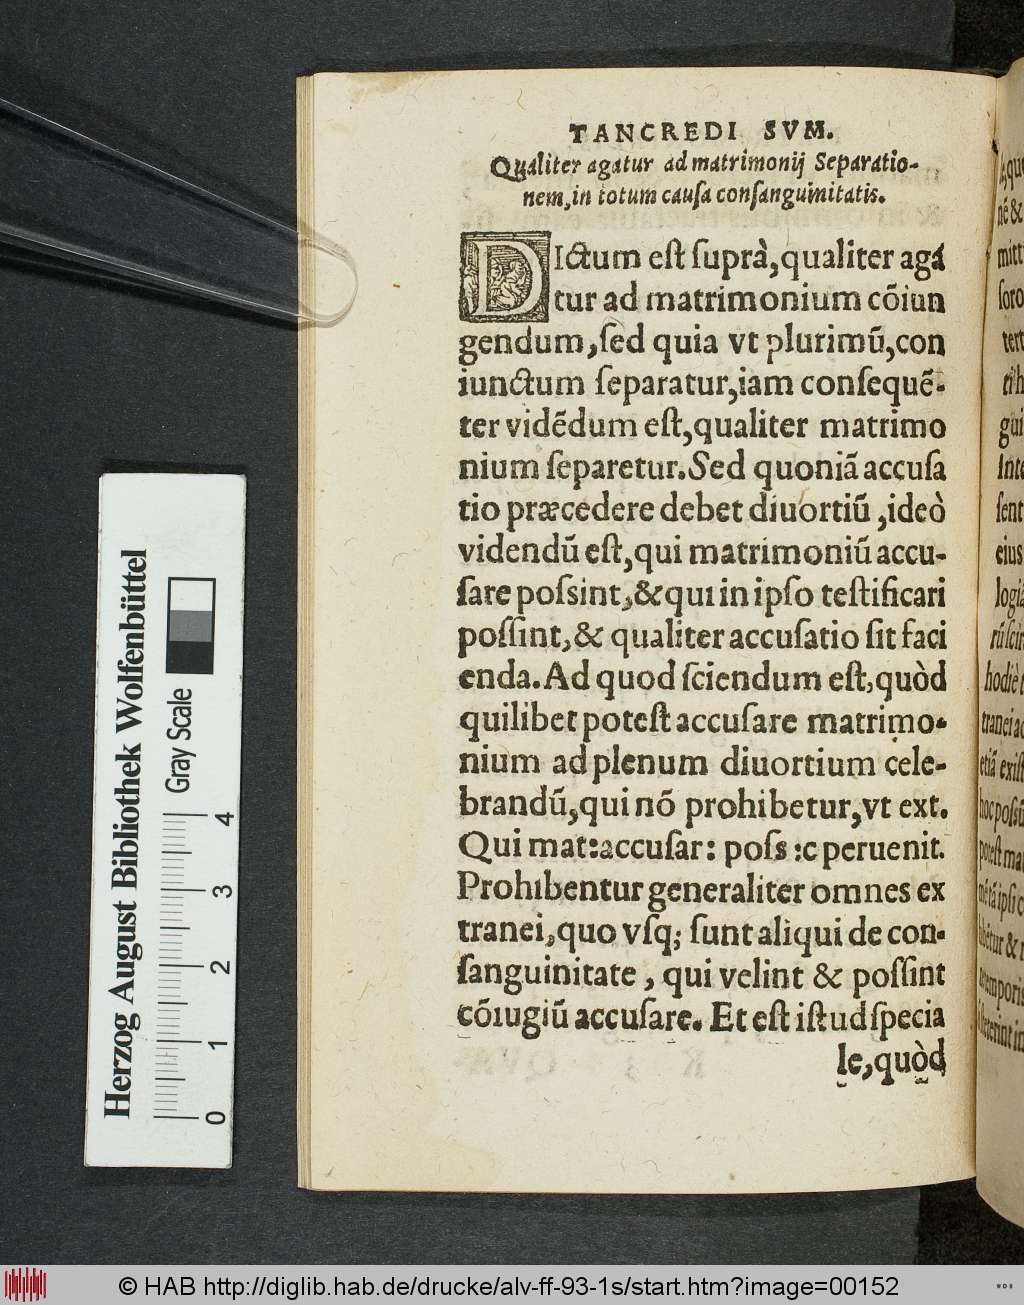 TANCREDI SVM.
Qualiter agatur ad matrimonij Separatio-
nem, in totum cauſa conſanguinitatis.
DIctum eſt ſuprà, qualiter agá
tur ad matrimonium cōiun
gendum, ſed quia vt plurimũ, con
iunctum ſeparatur, iam conſequẽ-
ter vidẽdum eſt, qualiter matrimo
nium ſeparetur. Sed quoniã accuſa
tio præcedere debet diuortiũ, ideò
videndũ eſt, qui matrimoniũ accu-
ſare poſsint, & qui in ipſo teſtificari
poſſint, & qualiter accuſatio ſit faci
enda. Ad quod ſciendum eſt, quòd
quilibet poteſt accuſare matrimo-
nium ad plenum diuortium cele-
brandũ, qui nō prohibetur, vt ext.
Qui mat: accuſar: poſs: c peruenit.
Prohibentur generaliter omnes ex
tranei, quo vſq; ſunt aliqui de con-
ſanguinitate, qui velint & poſſint
cōiugiũ accuſare. Et eſt iſtud ſpecia
le, quòd
Herzog August Bibliothek Wolfenbüttel
Gray Scale
0 1 2 3 4
© HAB http://diglib.hab.de/drucke/alv-ff-93-1s/start.htm?image=00152